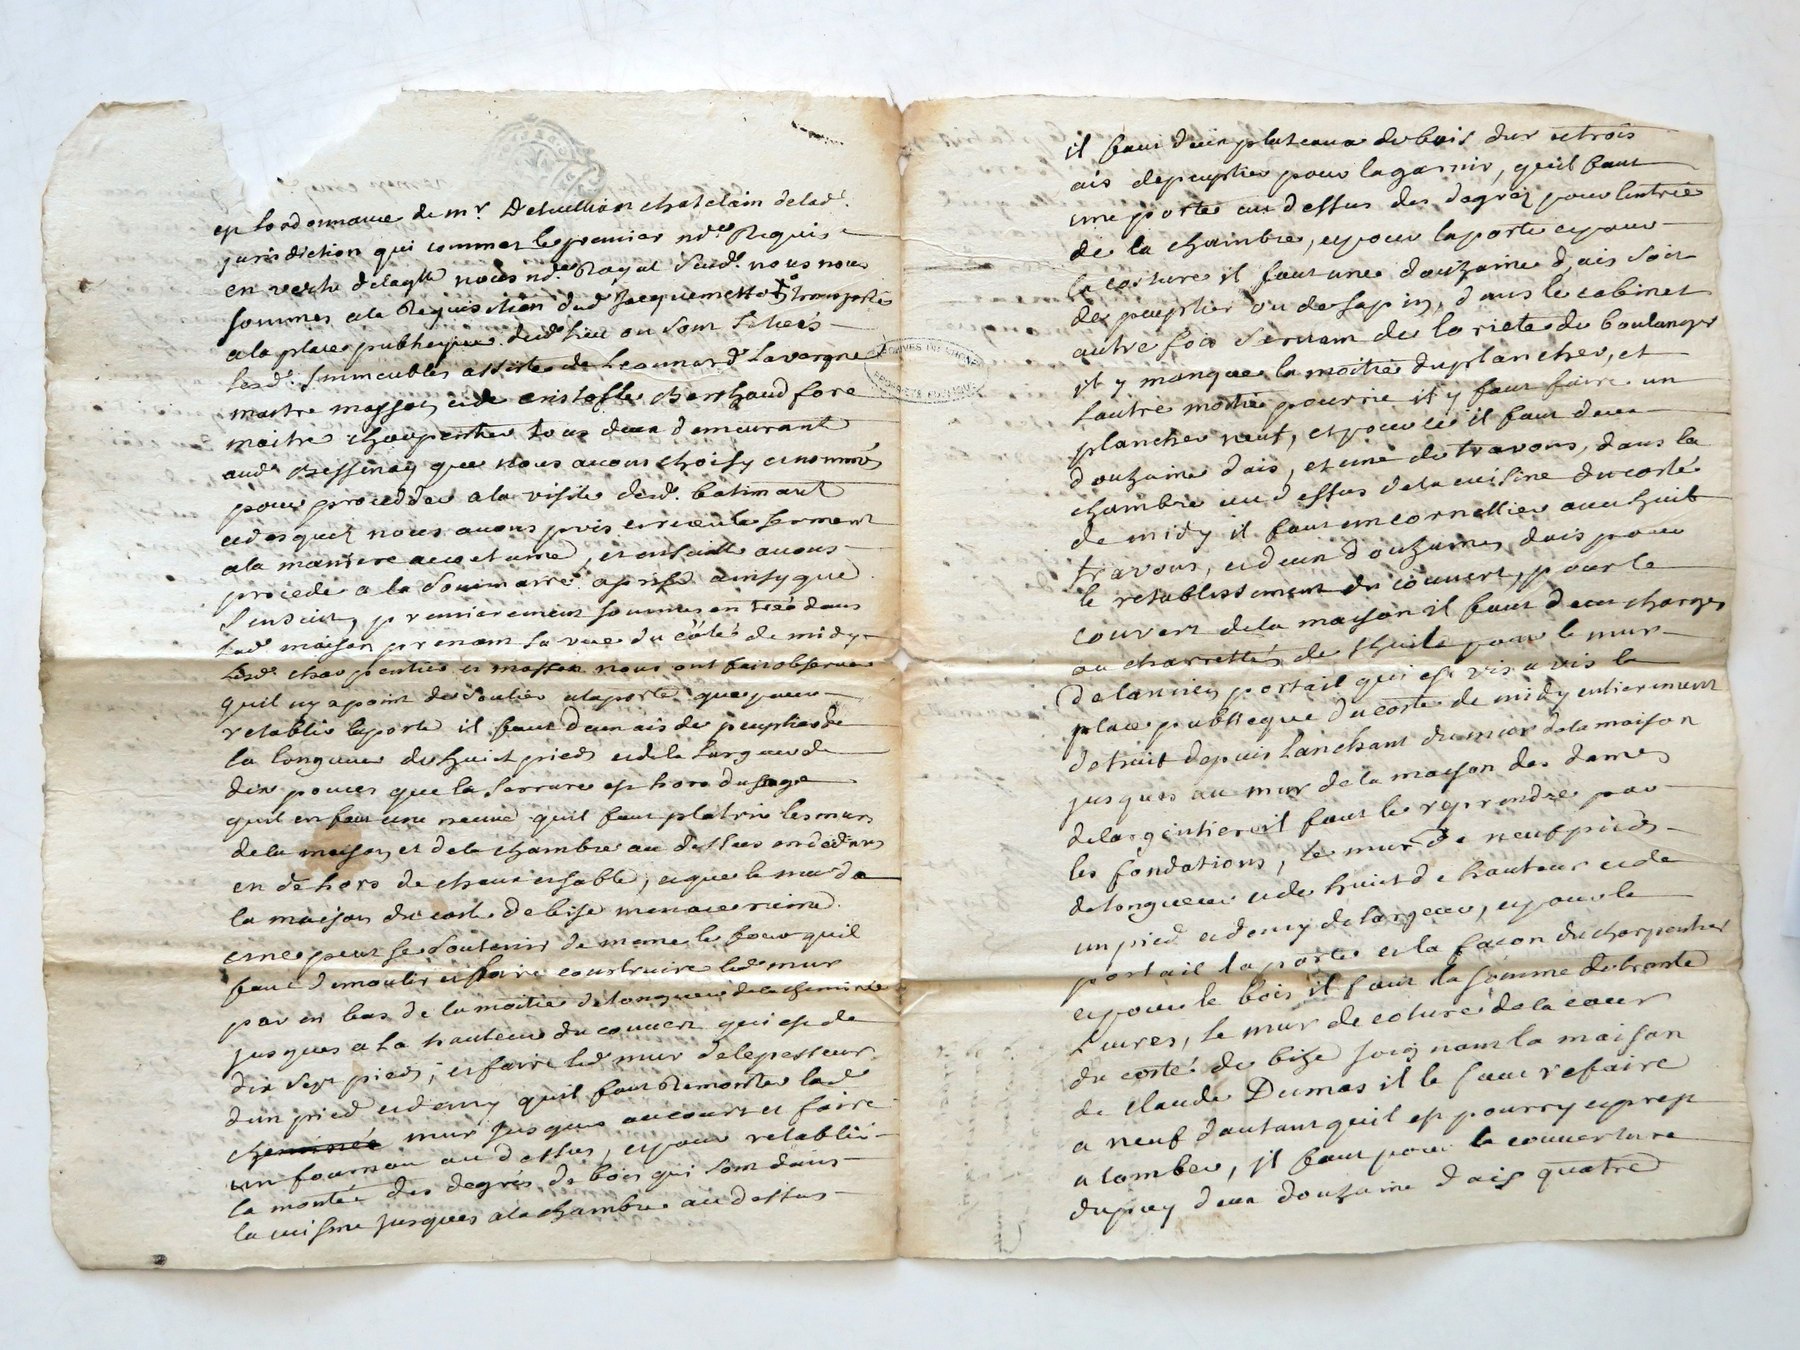 et lordonnance de mr. chatelain delad.
jurisdiction qui commet le premier nore. Requis
en vertu delaqlle nous nore. Royal susd. nous nous
sommes ala Requisition dud Jacquemetton transportés
a la place publicque dud. lieu ou sont situés
lesd. Immeubles assistes de Leonnard Lavergne
maitre masson et de cristofle
maitre charpentier tous deux demeurant
aud. que nous avons choisy et nommés
pour procedder a la visite desd. batimant
et desquels nous avons pris et receu le serment
ala maniere accoutumé, et ensuitte avons
procedé a la sommaire aprise ainsy que
sensuit, premierement sommes entreé dans
lad. maison prenant sa vue du côté de midy
lesd. charpentier et masson nous ont fait observer
quil ny a point de soulier alaporte que pour
retablir laporte il faut deux ais de peuplier de
la longueur de huict pieds et de la largeur de
dix pouces que la serrure est hors dusage
quil en faut une neuve quil faut platrir les murs
de la maison et de la chambre au dessus en dedans
en dehors de chaux et sable, et que le mur de
la maison du coste de bise menace ruine
et ne peut se soutenir de meme le four quil
faut demolir et faire construire led. mur
par en bas de la moitié de longueur de la cheminée
jusques a la hauteur du couvert qui est de
dix sept pieds, et faire led. mur de lepesseur
dun pied et demy quil faut Remonter lad
cheminée mur jusques au couvert et faire
un fourneau au dessus, et pour retablir
la monteé des degrés de bois qui sont dans
la cuisine jusques a la chambre au dessus
il faut plateaux de bois dur et trois
ais de peuplier pour lagarnir, quil faut
une porte au dessus des degrés pour lentrée
de la chambre, et pour laporte et pour
la il faut une douzaine dais soit
de peuplier ou de sapin, dans le cabinet
autre fois servant de la du boulanger
il y manque la moitié du plancher, et
lautre moitié pourrie il y faut faire un
plancher neuf, et pour ce il faut deux
douzaine dais, et une de travons, dans la
chambre au dessus de la cuisine du costé
de midy il faut un avec huit
travons, et deux douzaines dais pour
le retablissement du couvert, pour le
couvert de la maison il faut deux charges
ou charrettés de thuile pour le mur
de lancien portail qui est vis a vis la
place publicque du costé de midy entierement
detruit depuis du mur de la maison
jusques au mur de la maison des dames
de largentiere il faut le reprendre par
les fondations, le mur de neuf pieds
de longueur et de huict de hauteur et de
un pied et demy de largeur, et pour le
portail la porte et la facon du charpentier
et pour le bois il faut la somme de trente
livres, le mur de coture de la cour
du costé de bize joignant la maison
de claude Dumas il le faut refaire
a neuf dautant quil est pourry et prest
a tomber, il faut pour la couverture
du deux douzaine dais quatre